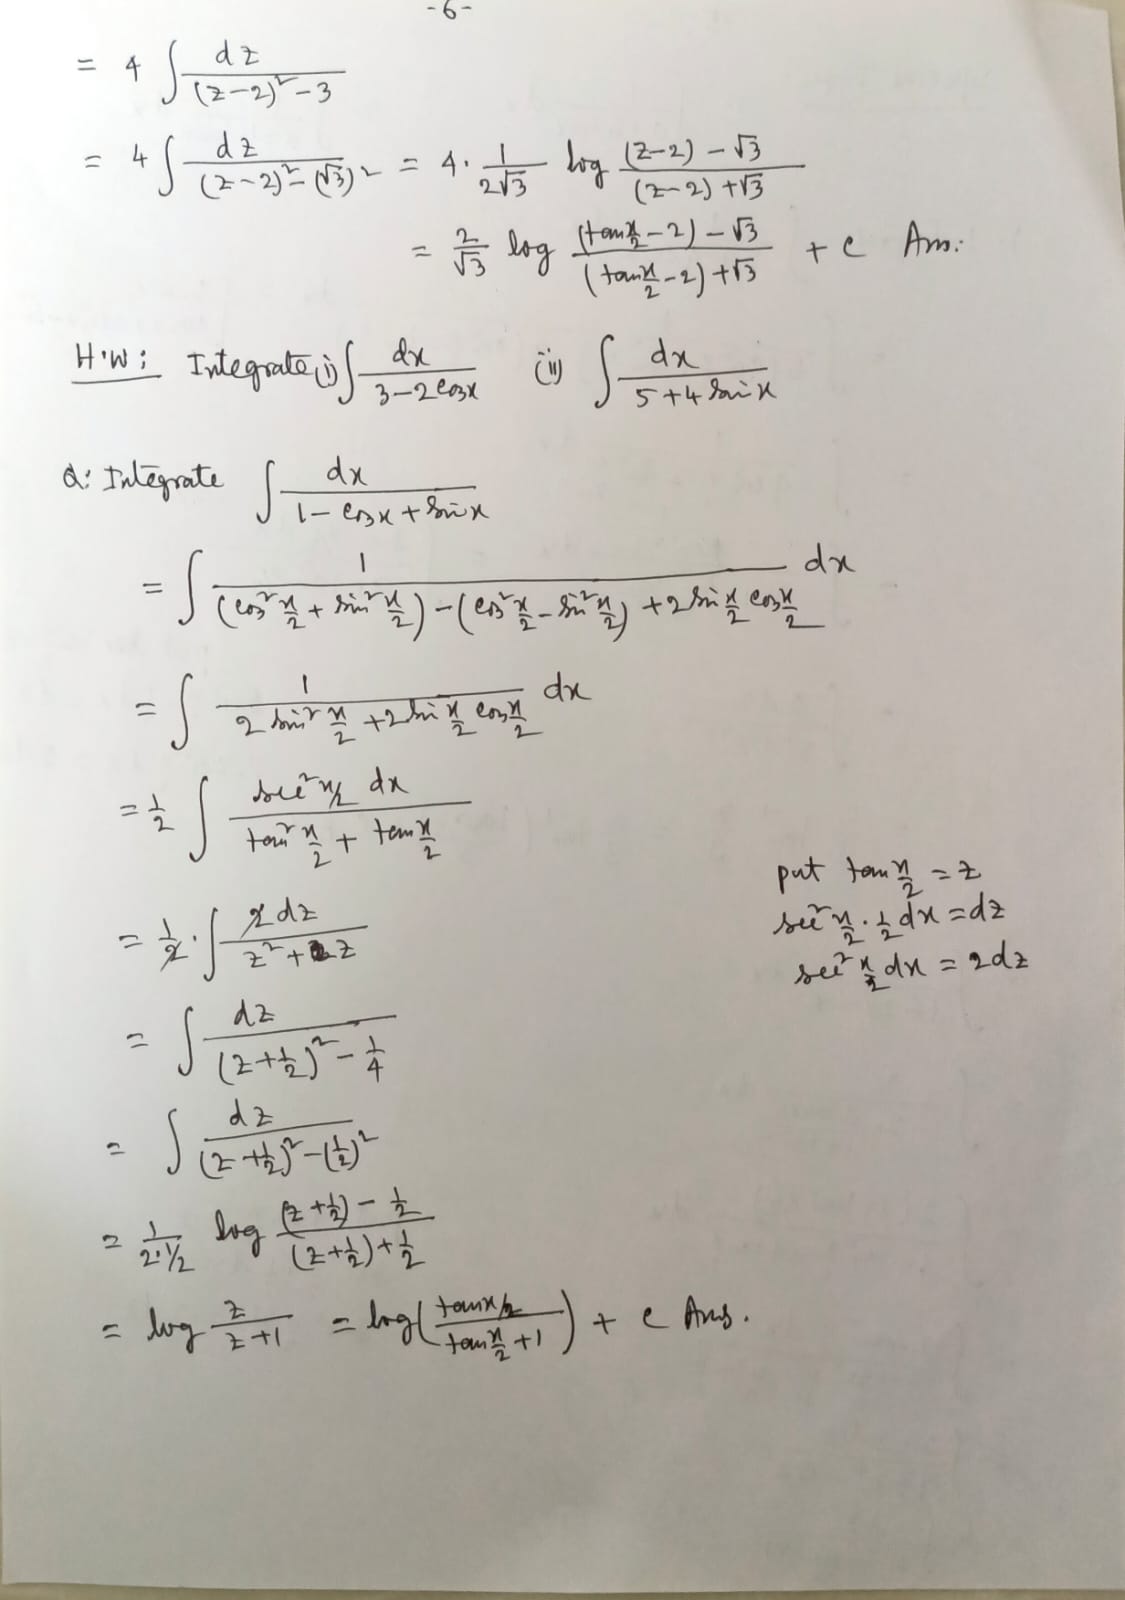 -6-
= 4 ∫ dz / ((z-2)² - 3)
= 4 ∫ dz / ((z-2)² - (√3)²) = 4 · 1/(2√3) log ((z-2) - √3) / ((z-2) + √3)
= 2/√3 log ((tan x/2 - 2) - √3) / ((tan x/2 - 2) + √3) + c Ans.
H.W: Integrate (i) ∫ dx / (3 - 2cosx) (ii) ∫ dx / (5 + 4 sinx)
Q: Integrate ∫ dx / (1 - cosx + sinx)
= ∫ 1 / ((cos² x/2 + sin² x/2) - (cos² x/2 - sin² x/2) + 2 sin x/2 cos x/2) dx
= ∫ 1 / (2 sin² x/2 + 2 sin x/2 cos x/2) dx
= 1/2 ∫ sec² x/2 dx / (tan² x/2 + tan x/2)
put tan x/2 = z
= 1/2 · ∫ 2dz / (z² + z)
sec² x/2 · 1/2 dx = dz
sec² x/2 dx = 2dz
= ∫ dz / ((z + 1/2)² - 1/4)
= ∫ dz / ((z + 1/2)² - (1/2)²)
= 1/(2·1/2) log ((z + 1/2) - 1/2) / ((z + 1/2) + 1/2)
= log z/(z+1) = log( (tan x/2) / (tan x/2 + 1) ) + c Ans.